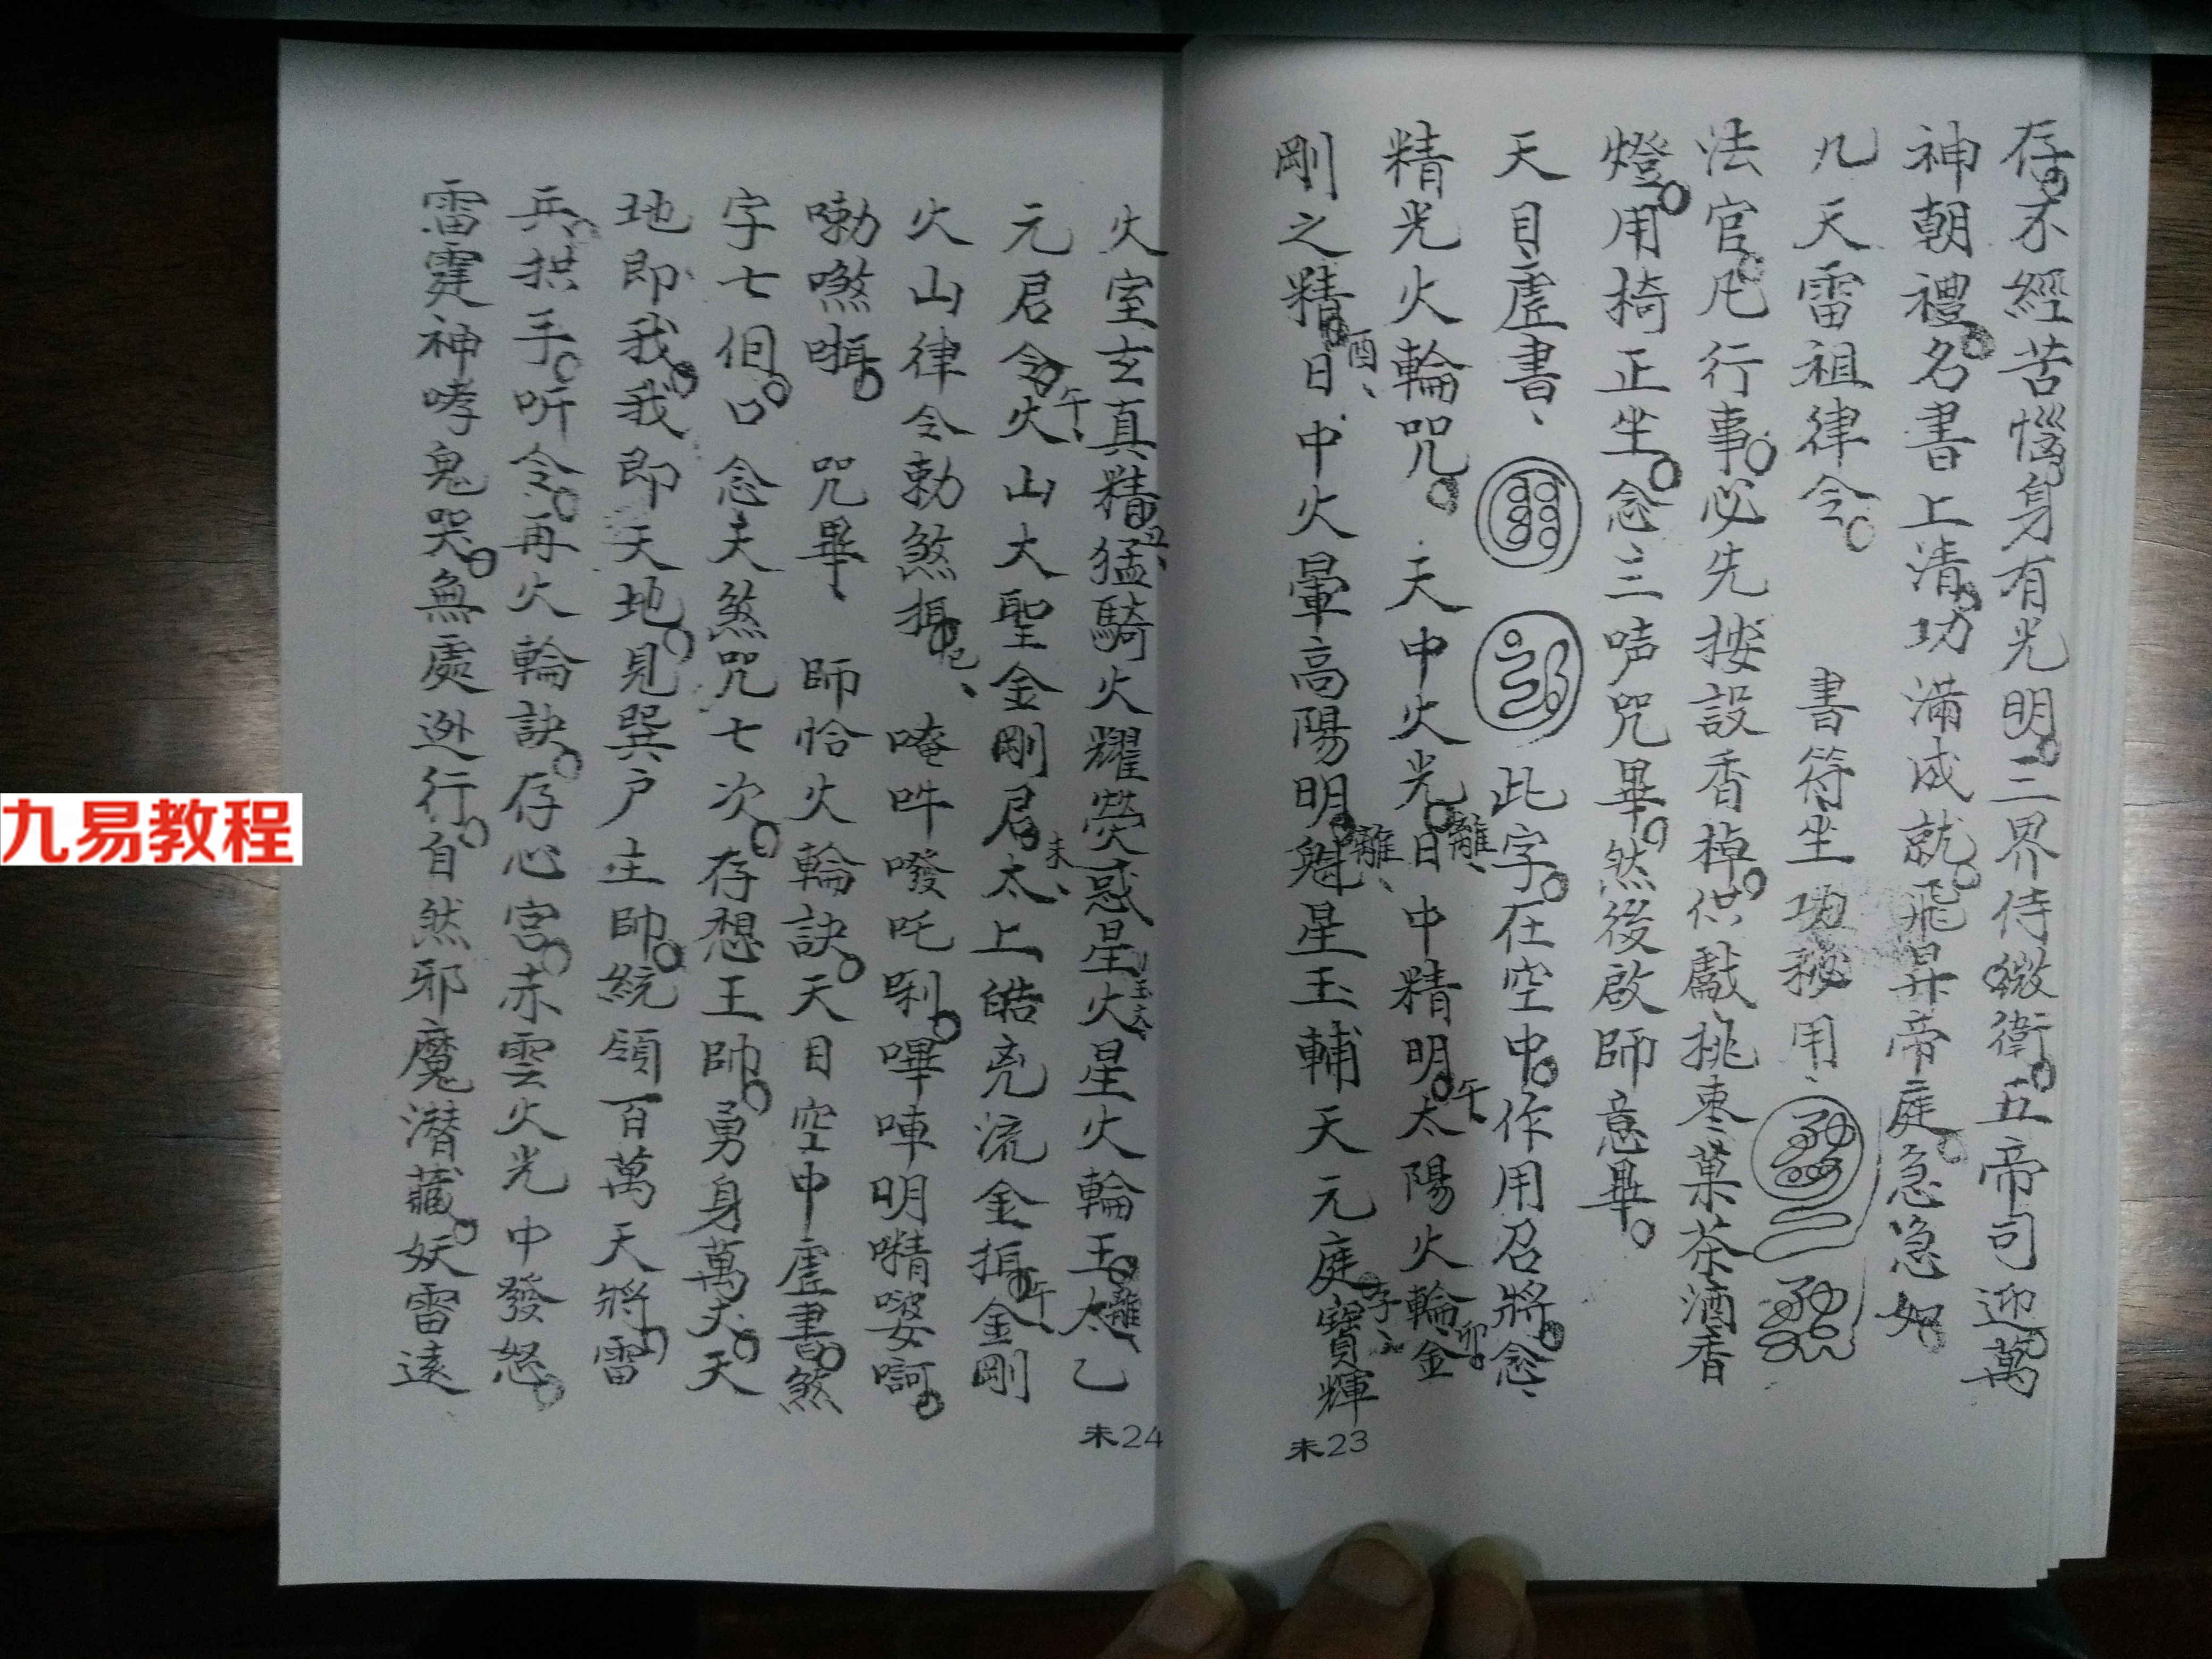 存不經苦惱。身有光明。三界侍衛。五帝司迎。萬
神朝禮。名書上清。功滿成就。飛昇帝庭。急急如
九天雷祖律令。 書符坐功秘用、
法官凡行事。必先按設香棹。供獻挑枣菓茶酒香
燈。用椅正坐。念三声咒畢。然後啟師意畢。
天目虛書、 此字。在空中。作用召將。念、
精光火輪咒。 天中火光。離、日中精明。午、太陽火輪卯。金
剛之精。酉、日中火暈高陽明。離、魁星玉輔天元庭。子、寶輝
未23
火室玄真精。丑、猛騎火耀熒惑星。玉文火星火輪王。離、太乙
元君令。午、火山大聖金剛君。未、太上皓亮流金捐。午、金剛
火山律令勅煞捐。巳、 唵吽㗶吒唎。嗶㖠明㗼嘙㗿。
嘞㗫㗇。 咒畢、 師恰火輪訣。天目空中虛書。煞
字七個。口念夫煞咒七次。存想王帥。勇身萬丈。天
地即我。我即天地。見巽户生帥。統領百萬天將。雷
兵拱手。听令。再火輪訣。存心宮。赤雲火光中發怒。
雷霆神哮鬼哭。無處逊行。自然邪魔潜藏。妖雷遠
未24
九易教程